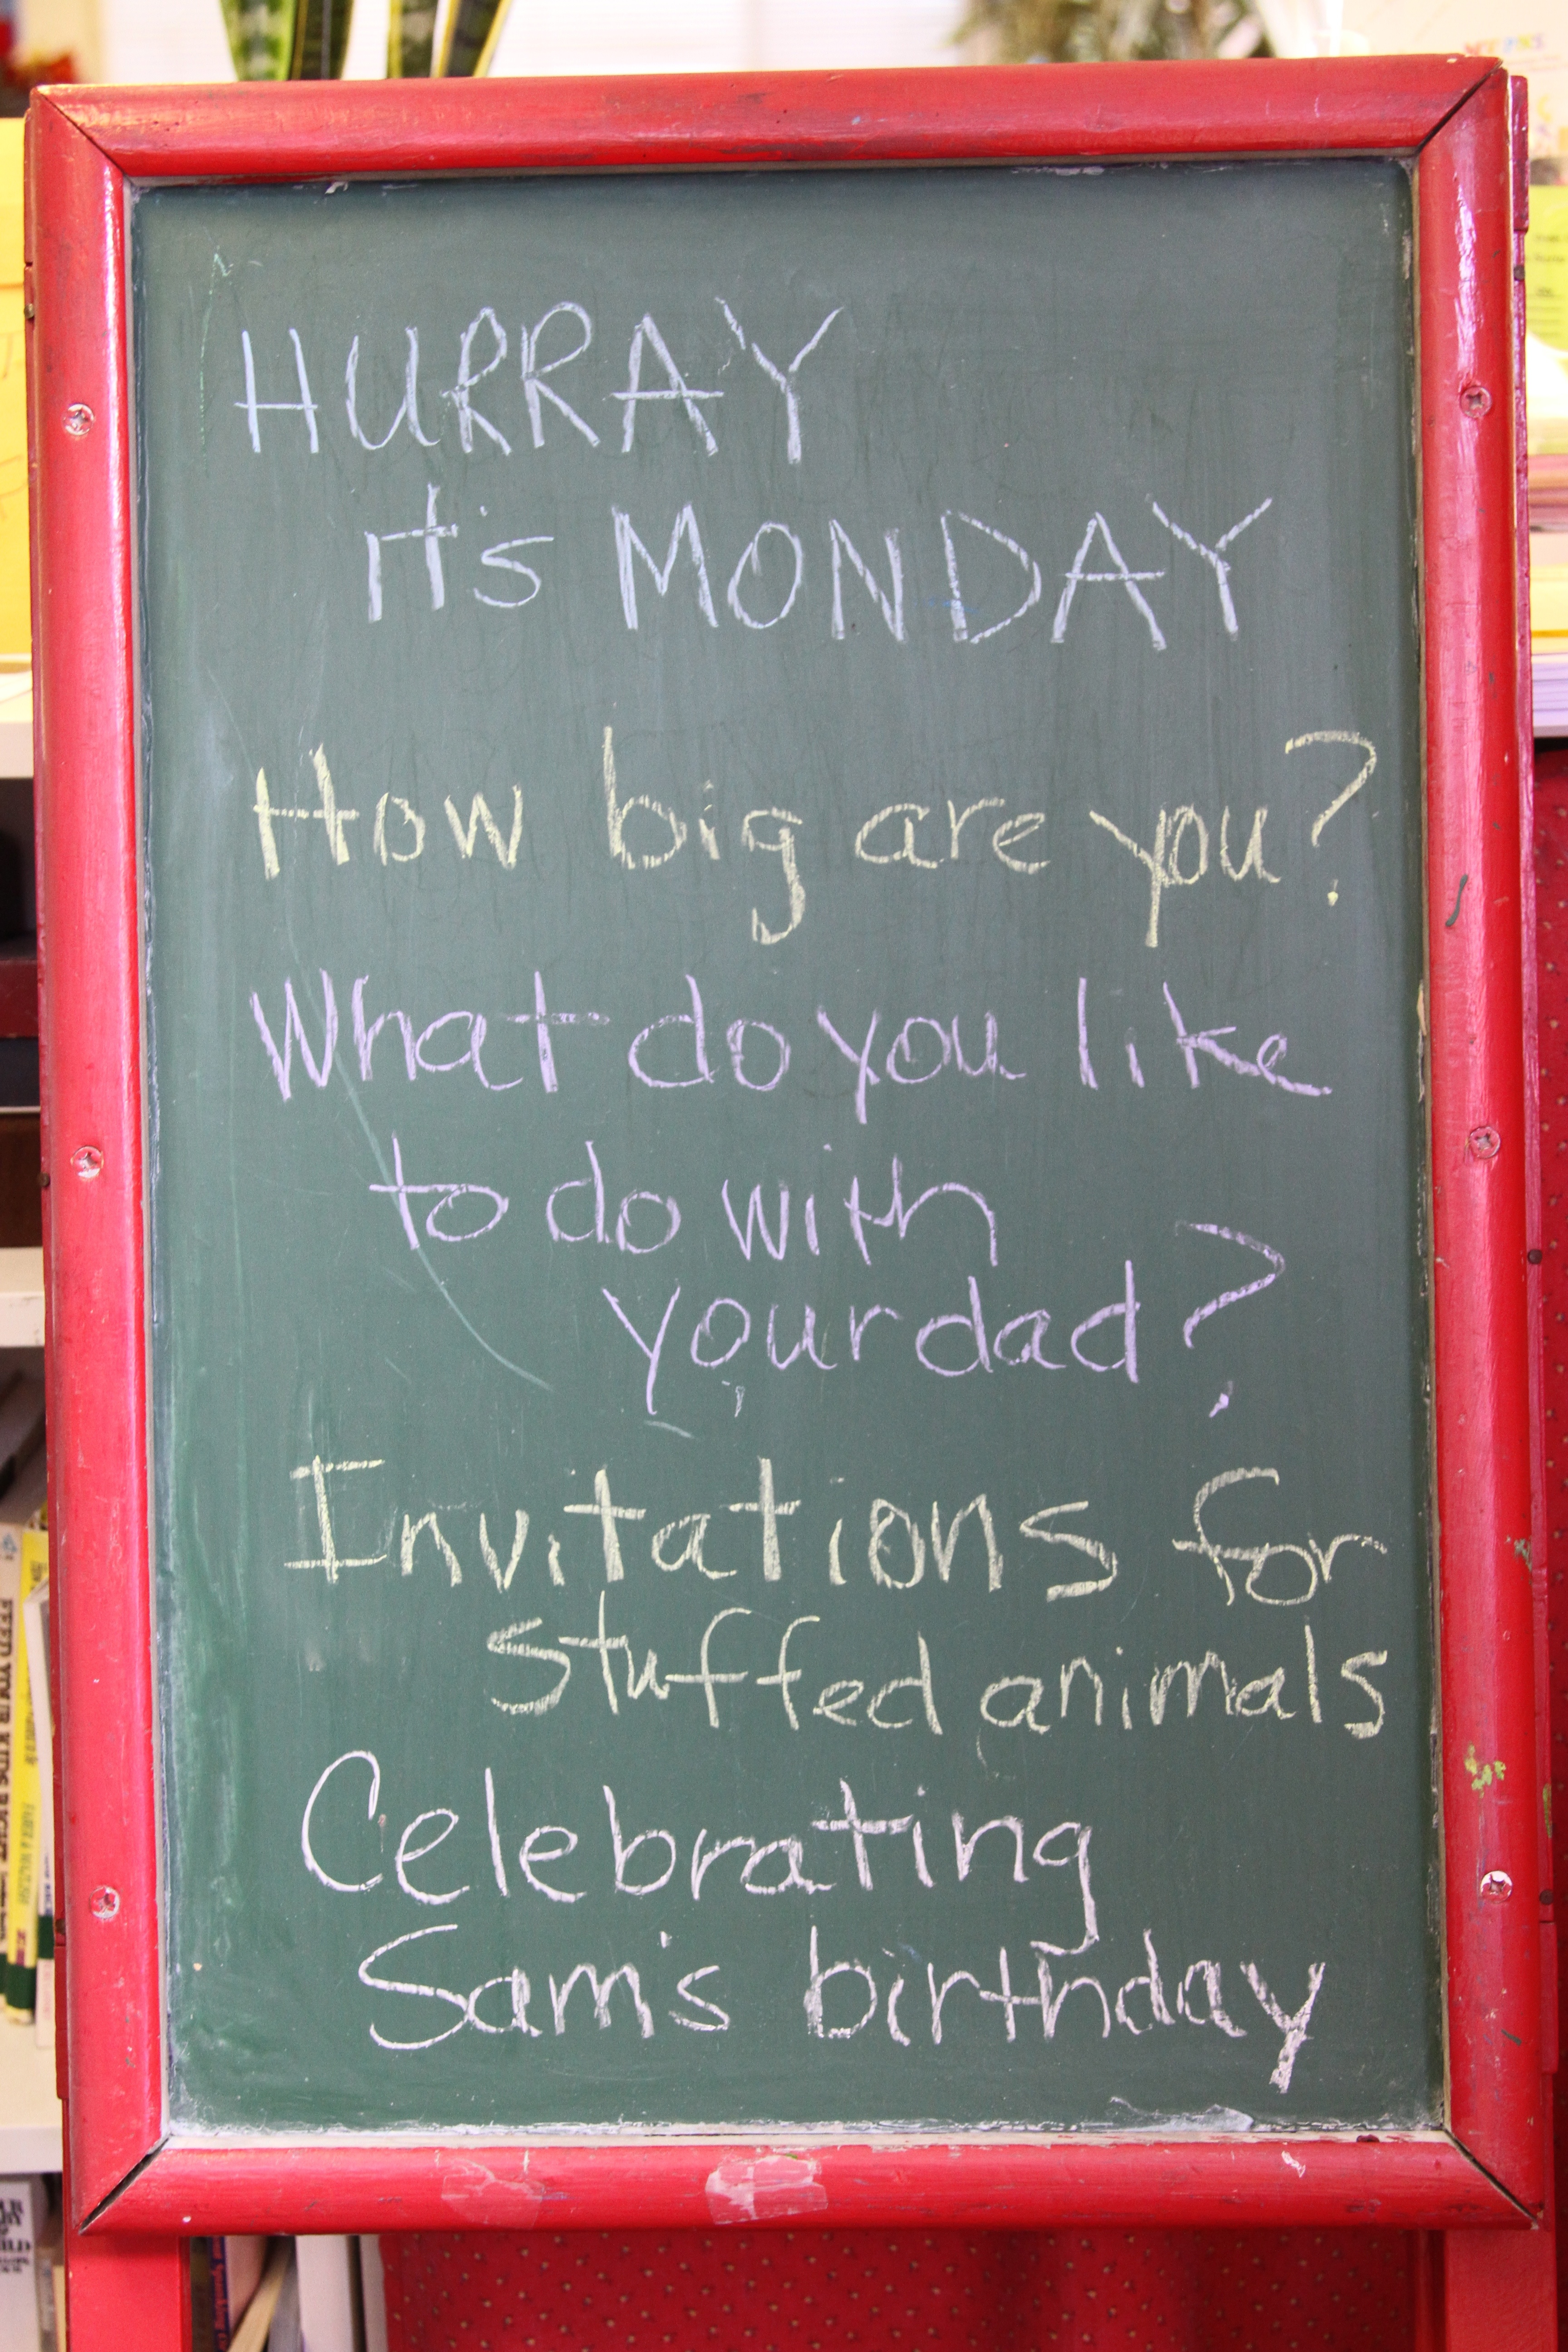 HURRAY
it's MONDAY
How big are you?
What do you like
to do with
your dad?
Invitations for
stuffed animals
Celebrating
Sam's birthday
FEED YOUR KIDS RIGHT